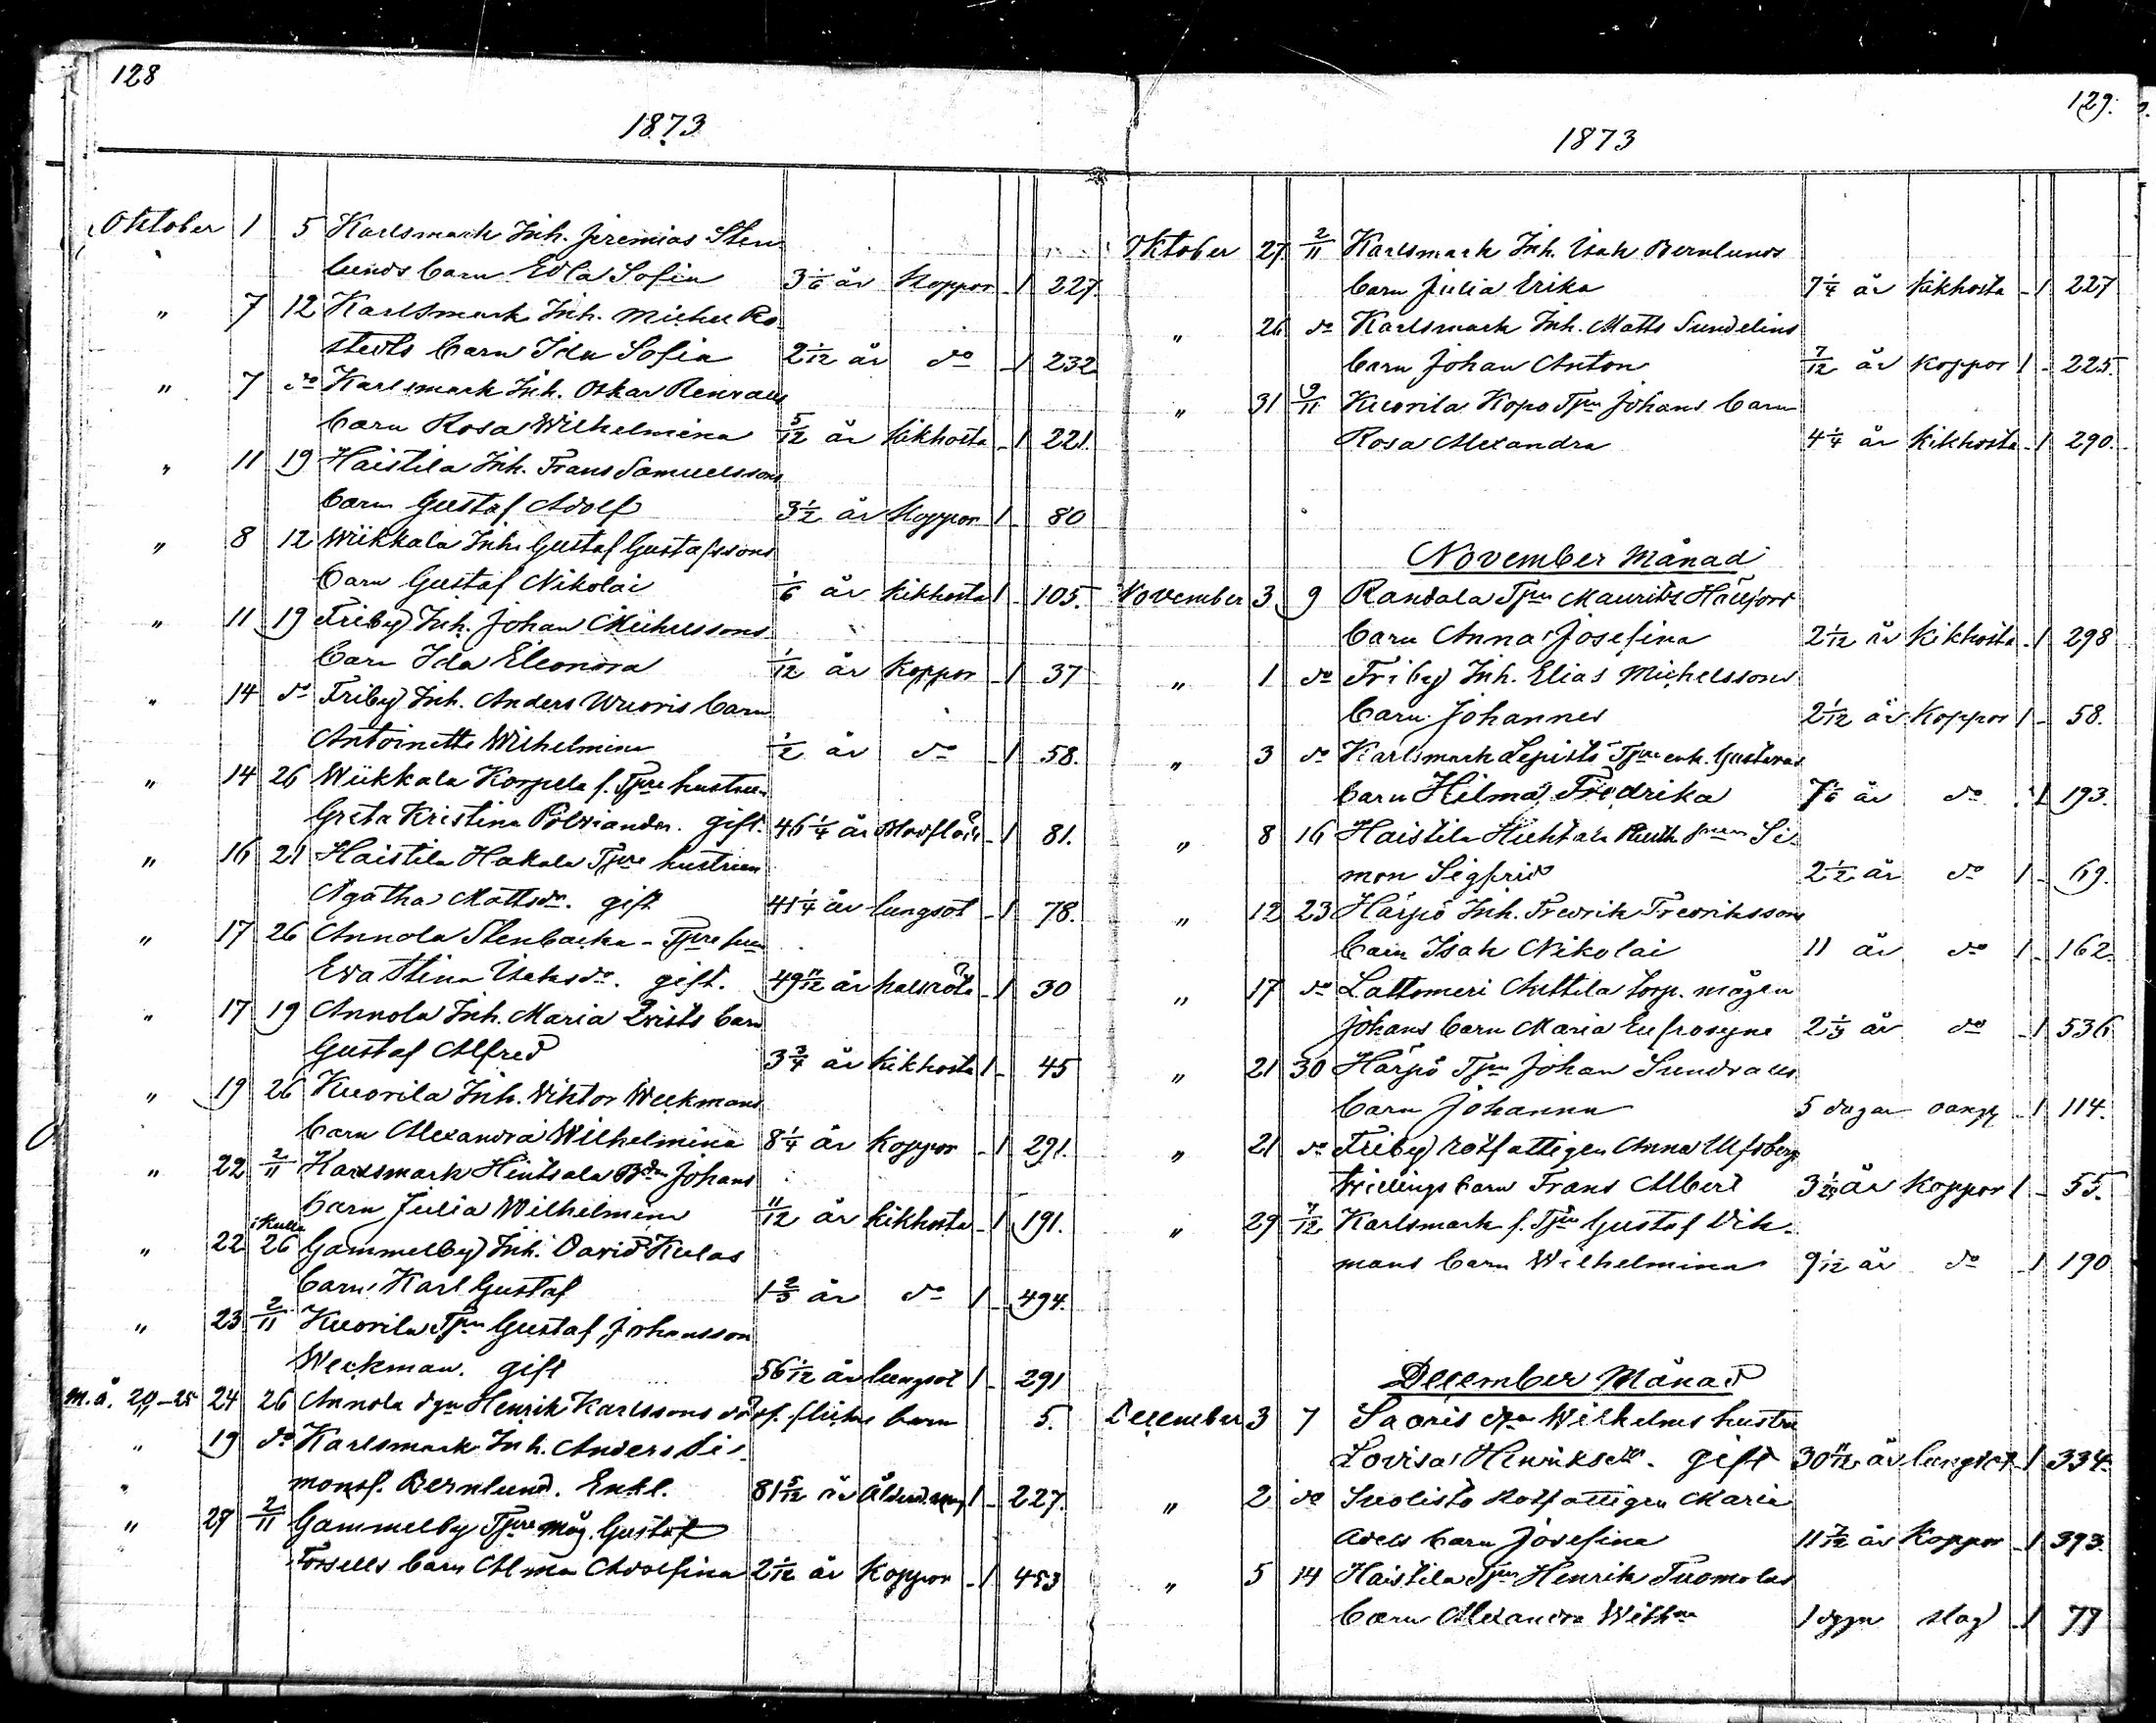 128
1873
Oktober 1 5 Karlsmark Inh. Jeremias Sten
lunds barn Edla Sofia 3 1/6 år Koppor - 1 227.
" 7 12 Karlsmark Inh. Michel Ro
stedts barn Ida Sofia 2 1/12 år do - 1 232
" 7 do Karlsmark Inh. Oskar Renvalls
barn Rosa Wilhelmina 5/12 år kikhosta - 1 221.
" 11 19 Haistila Inh. Frans Samuelssons
barn Gustaf Adolf 3 1/2 år Koppor 1 - 80
" 8 12 Wiikkala Inh. Gustaf Gustafssons
barn Gustaf Nikolai 1/6 år kikhosta 1 - 105.
" 11 19 Friby Inh. Johan Michelssons
barn Ida Eleonora 1/12 år Koppor - 1 37
" 14 do Friby Inh. Anders Wuoris barn
Antoinette Wilhelmina 1/2 år do - 1 58.
" 14 26 Wiikkala Korpela f. Tjre hustrun
Greta Kristina Polviander. gift. 46 1/4 år - 1 81.
" 16 21 Haistila Hakala Tjre hustrun
Agatha Mattsdr. gift 41 1/4 år lungsot - 1 78.
" 17 26 Annola Stenbacka - Tjre
Eva Stina Isaksdr. gift. 49 11/12 år halsröta - 1 30
" 17 19 Annola Inh. Maria Qvists barn
Gustaf Alfred 3 3/4 år Kikhosta 1 - 45
" 19 26 Kuorila Inh. Viktor Weckmans
barn Alexandra Wilhelmina 8 1/4 år Koppor - 1 291.
" 22 2/11 Karlsmark Hintsala Bdn Johans
barn Julia Wilhelmina 11/12 år kikhosta - 1 191.
i Kulla
" 22 26 Gammelby Inh. David Kulas
barn Karl Gustaf 1 2/3 år do 1 - 494.
" 23 2/11 Kuorila Tjrn Gustaf Johansson
Weckman. gift 56 1/12 år lungsot 1 - 291
m.å. 20-25 24 26 Annola Henrik Karlssons barn 5.
" 19 do Karlsmark Inh. Anders Si-
monsf. Bernlund. Enkl. 81 5/12 år 1 - 227.
" 27 2/11 Gammelby Tjre måg. Gustaf
Forsells barn Alma Adolfina 2 1/12 år Koppor - 1 453
129.
1873
Oktober 27 2/11 Karlsmark Inh. Isak Bernlunds
barn Julia Erika 7 1/4 år Kikhosta - 1 227
" 26 do Karlsmark Inh. Matts Sundelins
barn Johan Anton 7/12 år Koppor 1 - 225.
" 31 9/11 Kuorila Kopo Tjrn Johans barn
Rosa Alexandra 4 1/4 år Kikhosta - 1 290.
November Månad
November 3 9 Randala Tjrn Mauritz Häiijors
barn Anna Josefina 2 1/12 år Kikhosta - 1 298
" 1 do Friby Inh. Elias Michelssons
barn Johannes 2 1/12 år Koppor 1 - 58.
" 3 do Karlsmark Lepistö Tjre enk. Gustavas
barn Hilma Fredrika 7 1/6 år do 1 193.
" 8 16 Haistila Huhtala Si-
mon Sigfrid 2 1/2 år do 1 - 69.
" 12 23 Härpö Inh. Fredrik Fredrikssons
barn Isak Nikolai 11 år do 1 - 162.
" 17 do Lattomeri Anttila torp. mågen
Johans barn Maria Eufrosyne 2 1/3 år do - 1 536
" 21 30 Härpö Tjrn Johan Sundvalls
barn Johanna 5 dagar - 1 114.
" 21 do Friby rotfattigen Anna Ulfsbergs
trillings barn Frans Albert år Koppor 1 - 55.
" 29 7/12 Karlsmark f. Tjrn Gustaf Vik-
mans barn Wilhelmina 9 1/12 år do - 1 190
December Månad
December 3 7 Saoris Wilhelms hustru
Lovisa Henriksdr. gift 30 11/12 år lungsot - 1 334.
" 2 do Suolisto Rotfattigen Maria
Adels barn Josefina 11 7/12 år Koppor - 1 393.
" 5 14 Haistila Tjrn Henrik Tuomolas
barn Alexandra Wilhna 1 dygn slag - 1 77